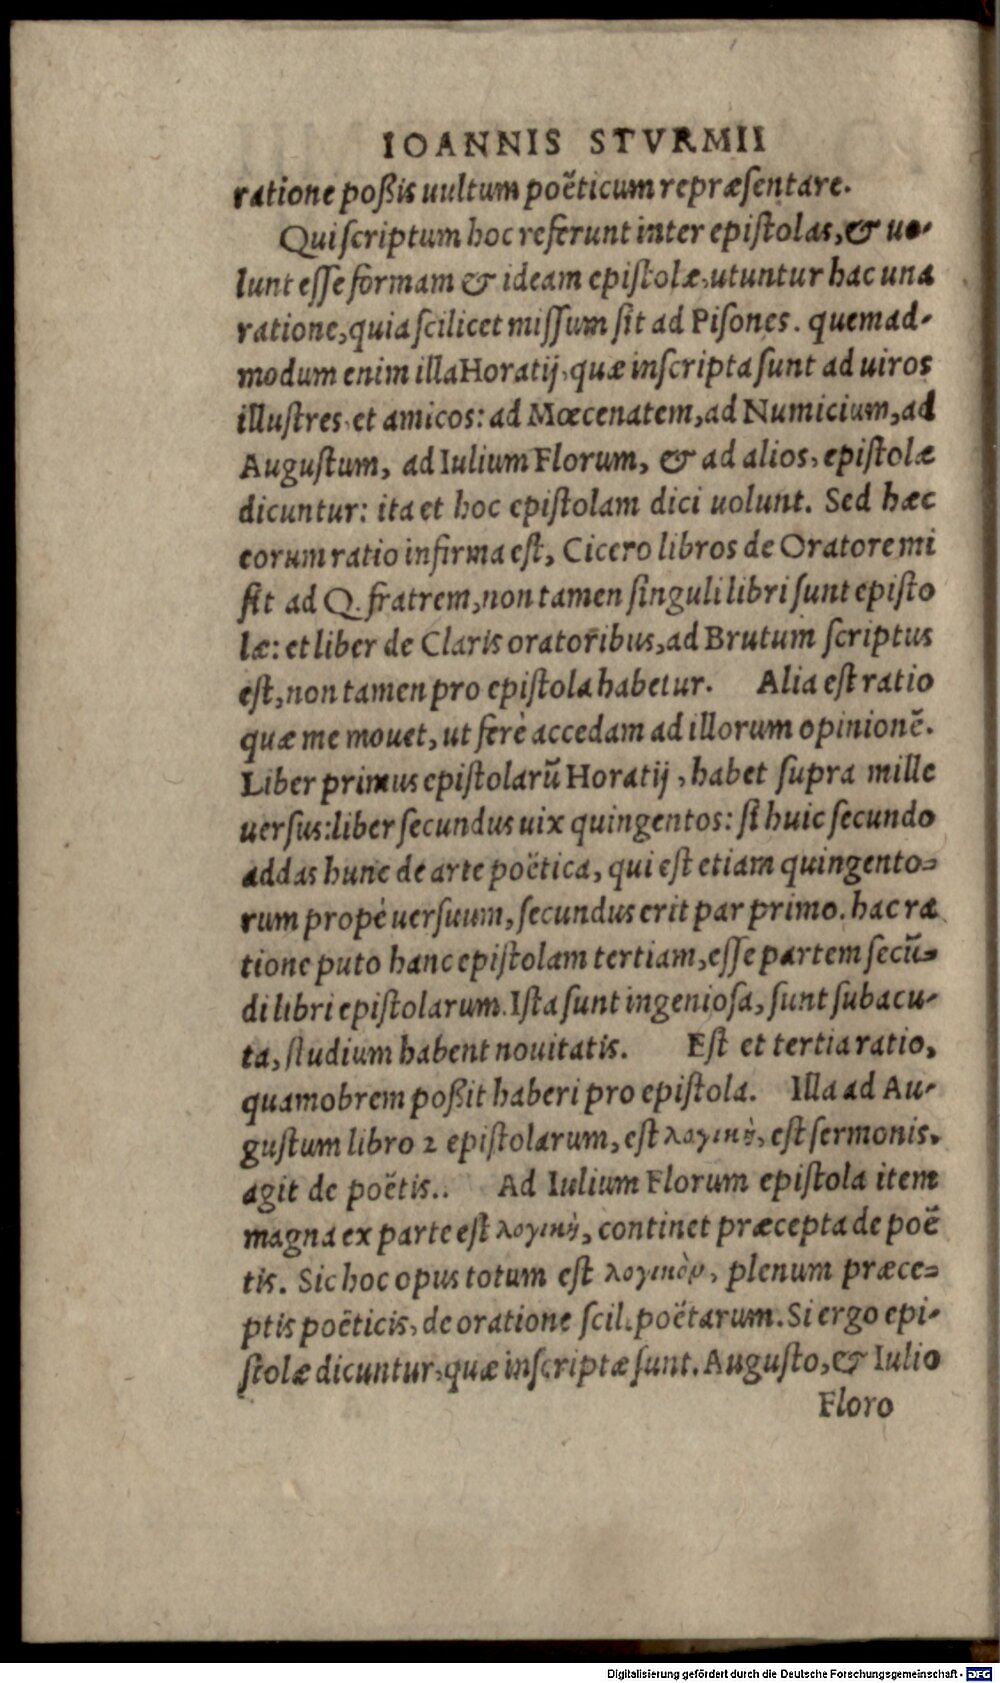 IOANNIS STVRMII
ratione poßis uultum poëticum repræsentare.
Qui scriptum hoc referunt inter epistolas, & uo-
lunt esse formam & ideam epistolæ, utuntur hac una
ratione, quia scilicet missum sit ad Pisones. quemad-
modum enim illa Horatij, quæ inscripta sunt ad uiros
illustres, et amicos: ad Mœcenatem, ad Numicium, ad
Augustum, ad Iulium Florum, & ad alios, epistolæ
dicuntur: ita et hoc epistolam dici uolunt. Sed hæc
eorum ratio infirma est, Cicero libros de Oratore mi
sit ad Q. fratrem, non tamen singuli libri sunt episto
læ: et liber de Claris oratoribus, ad Brutum scriptus
est, non tamen pro epistola habetur. Alia est ratio
quæ me mouet, ut ferè accedam ad illorum opinionē.
Liber primus epistolarū Horatij, habet supra mille
uersus: liber secundus uix quingentos: si huic secundo
addas hunc de arte poëtica, qui est etiam quingento-
rum propè uersuum, secundus erit par primo. hac ra
tione puto hanc epistolam tertiam, esse partem secū-
di libri epistolarum. Ista sunt ingeniosa, sunt subacu-
ta, studium habent nouitatis. Est et tertia ratio,
quamobrem poßit haberi pro epistola. Illa ad Au-
gustum libro 2 epistolarum, est λογικὴ, est sermonis,
agit de poëtis.. Ad Iulium Florum epistola item
magna ex parte est λογικὴ, continet præcepta de poë
tis. Sic hoc opus totum est λογικὸν, plenum præce-
ptis poëticis, de oratione scil. poëtarum. Si ergo epi-
stolæ dicuntur, quæ inscriptæ sunt. Augusto, & Iulio
Floro
Digitalisierung gefördert durch die Deutsche Forschungsgemeinschaft - DFG